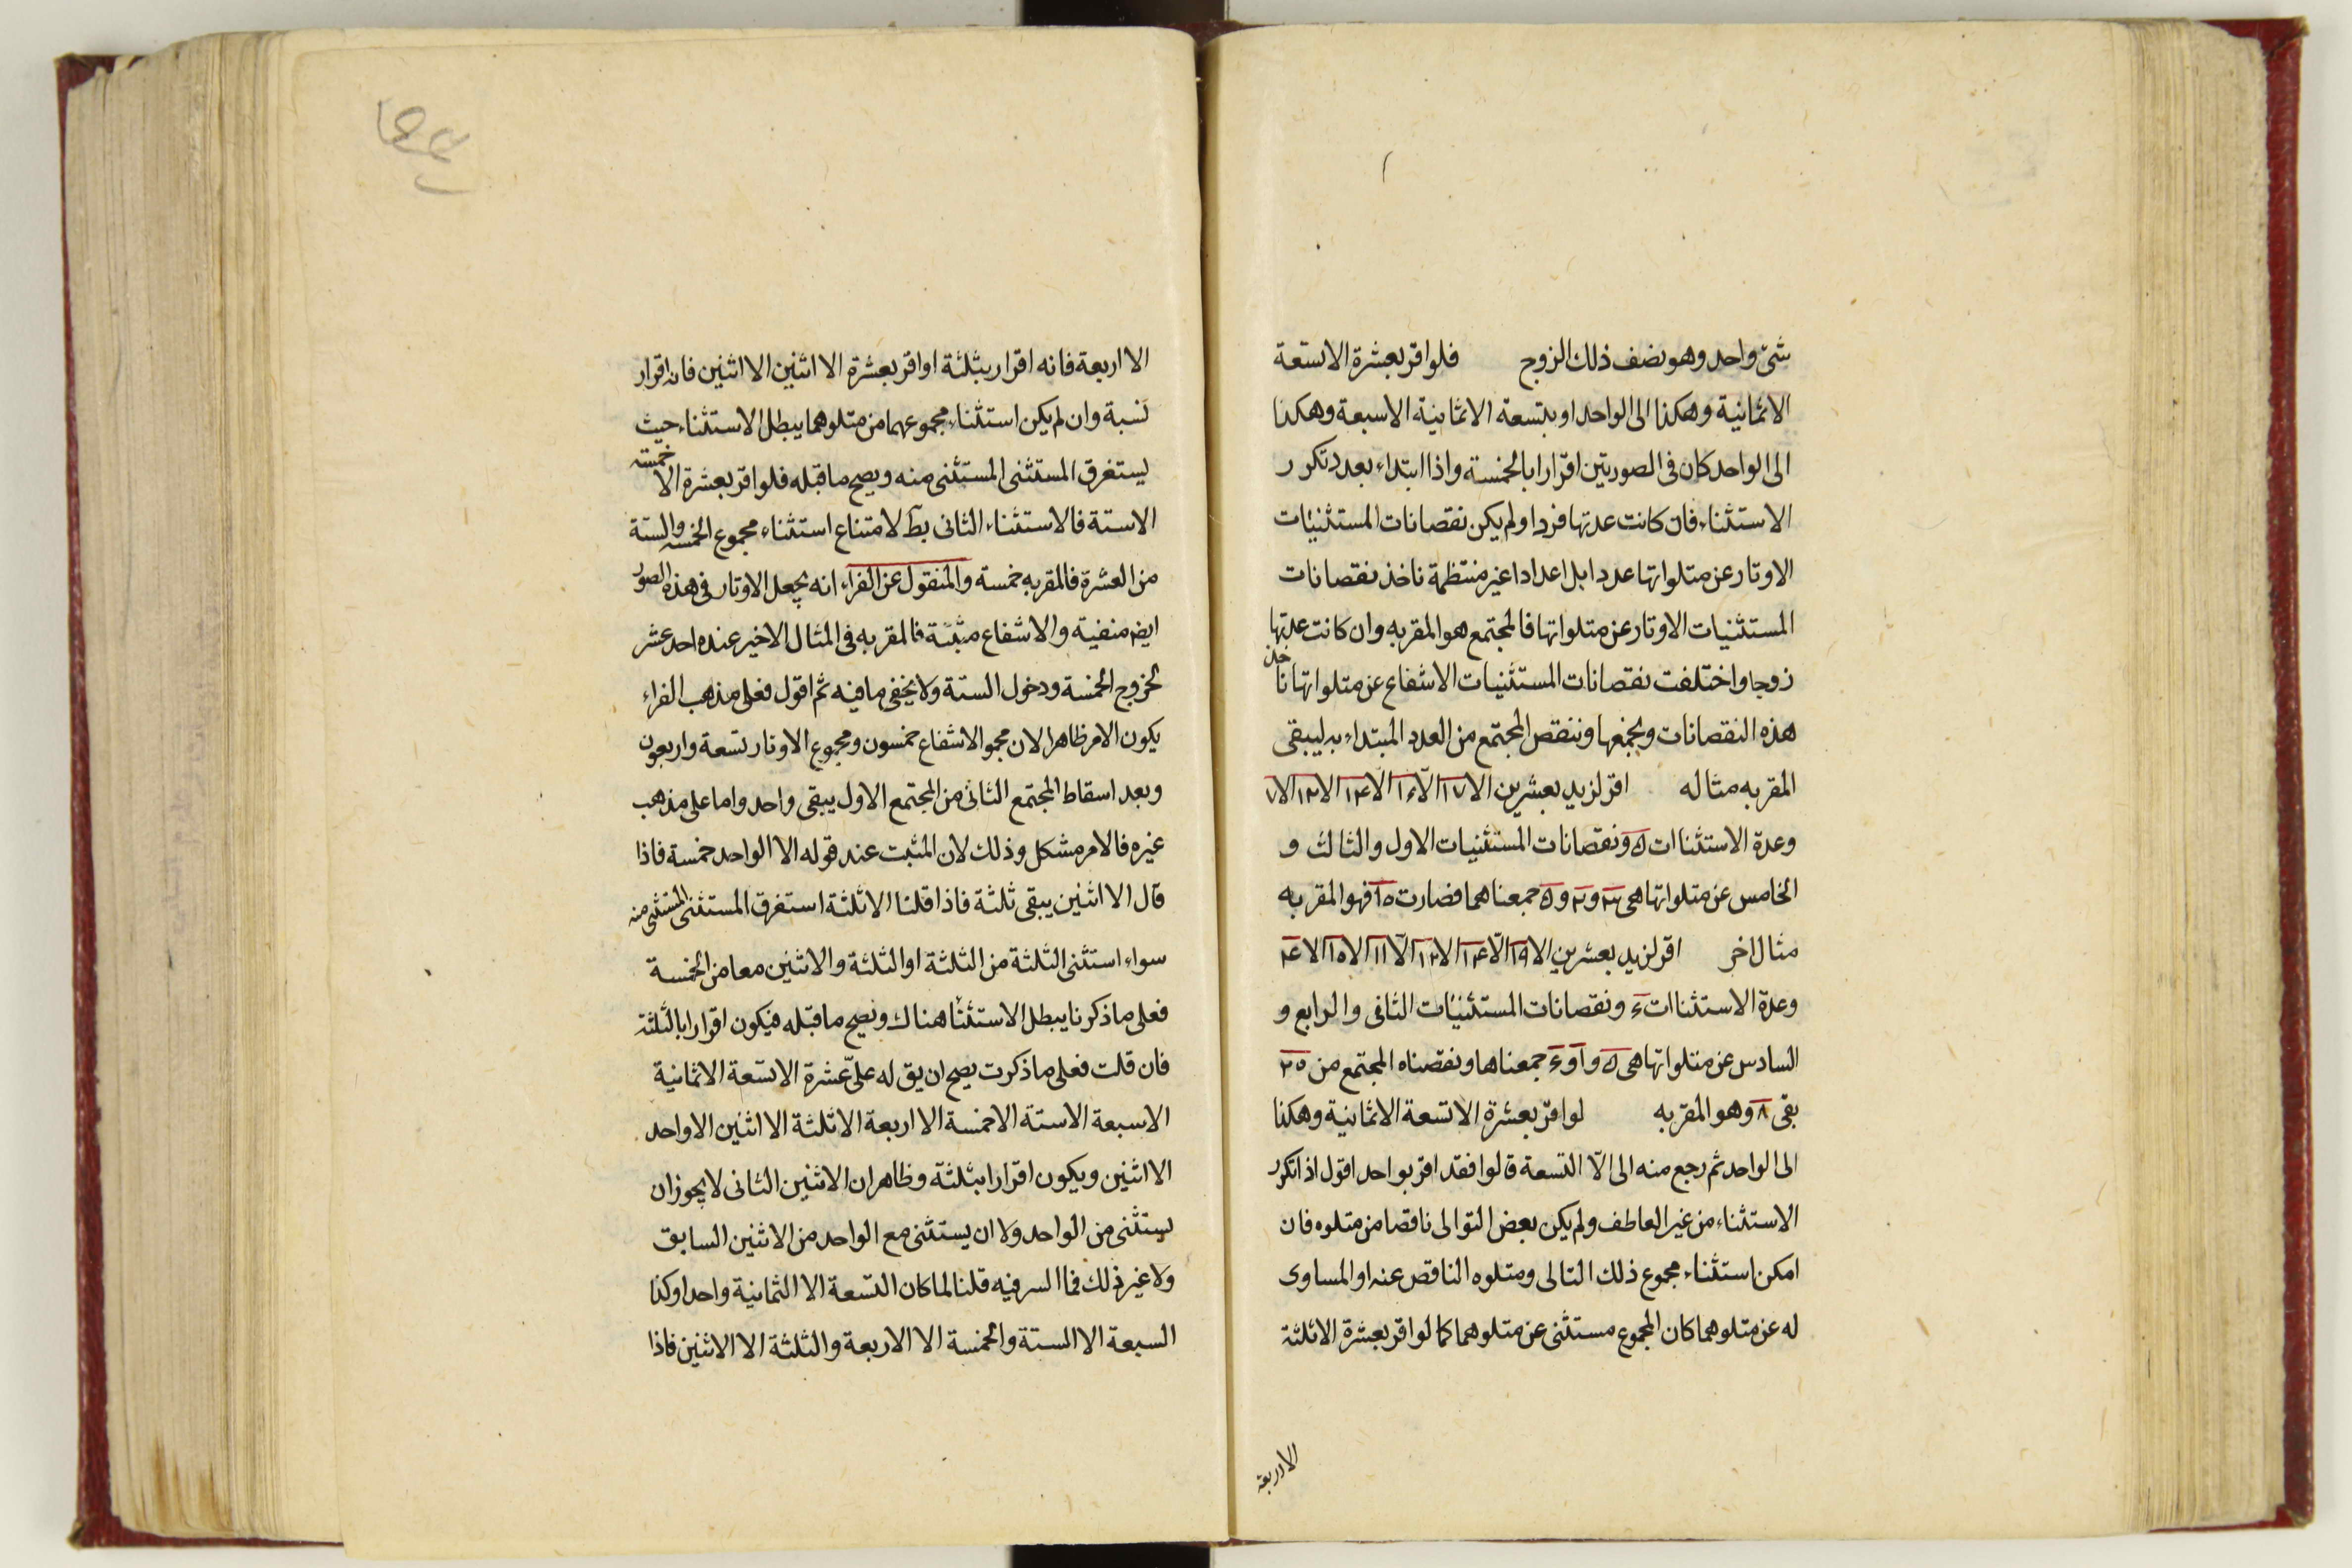 شئ واحد وهو نصف ذلك الزوج فلو اقر بعشرة الا تسعة
الا ثمانية وهكذا الى الواحد او بتسعة الا ثمانية الا سبعة وهكذا
الى الواحد كان فى الصورتين اقرارا بالخمسة واذا ابتداء بعدد تكرر
الاستثناء فان كانت عدتها فردا ولم يكن نقصانات المستثنيات
الاوتار عن متلواتها عددا بل اعدادا غير منتظمة ناخذ نقصانات
المستثنيات الاوتار عن متلواتها فالمجتمع هو المقر به وان كانت عدتها
زوجا واختلفت نقصانات المستثنيات الاشفاع عن متلواتها ناخذ
هذه النقصانات ونجمعها وننقص المجتمع من العدد المبتداء به ليبقى
المقر به مثاله اقر لزيد بعشرين الا ١٧ الا ١٤ الا ١٢ الا ٧
وعدة الاستثناات ۵ ونقصانات المستثنيات الاول والثالث و
الخامس عن متلواتها هى ٣ و ٢ و ۵ جمعناهما فصارت ١٥ فهو المقر به
مثال اخر اقر لزيد بعشرين الا ١٩ الا ١٤ الا ١٢ الا ١١ الا ١٥ الا ٤
وعدة الاستثناات ونقصانات المستثنيات الثانى والرابع و
السادس عن متلواتها هى ۵ و ١ و جمعناها ونقصناه المجتمع من ٢٥
بقى ٨ وهو المقر به لو اقر بعشرة الا تسعة الا ثمانية وهكذا
الى الواحد ثم رجع منه الى الا التسعة قالوا فقد اقر بواحد اقول اذا تكرر
الاستثناء من غير العاطف ولم يكن بعض التوالى ناقصا من متلوه فان
امكن استثناء مجموع ذلك التالى ومتلوه الناقص عنه او المساوى
له عن متلوهما كان المجموع مستثنى عن متلوهما كما لو اقر بعشرة الا ثلثة
الا اربعة
الا اربعة فانه اقرار بثلثة او اقر بعشرة الا اثنين الا اثنين فانه اقرار
وان لم يكن استثناء مجموعهما من متلوهما يبطل الاستثناء حيث
يستغرق المستثنى المستثنى منه ويصح ما قبله فلو اقر بعشرة الا خمسة
الا ستة فالاستثناء الثانى بط لامتناع استثناء مجموع الخمسة والستة
من العشرة فالمقر به خمسة والمنقول عن الفراء انه يجعل الاوتار فى هذه الصور
ايضا منفية والاشفاع مثبتة فالمقر به فى المثال الاخير عنده احد عشر
لخروج الخمسة ودخول الستة ولا يخفى ما فيه ثم اقول فعلى مذهب الفراء
يكون الامر ظاهرا لان مجمو الاشفاع خمسون ومجموع الاوتار تسعة واربعون
وبعد اسقاط المجتمع الثانى من المجتمع الاول يبقى واحد واما على مذهب
غيره فالامر مشكل وذلك لان المثبت عند قوله الا الواحد خمسة فاذا
قال الا اثنين يبقى ثلثة فاذا قلنا الا ثلثة استغرق المستثنى المستثنى منه
سواء استثنى الثلثة من الثلثة او الثلثة والاثنين معا من الخمسة
فعلى ما ذكرنا يبطل الاستثنا هناك ويصح ما قبله فيكون اقرارا بالثلثة
فان قلت فعلى ما ذكرت يصح ان يق له على عشرة الا تسعة الا ثمانية
الا سبعة الا ستة الا خمسة الا اربعة الا ثلثة الا اثنين الا واحد
الا اثنين ويكون اقرارا بثلثة وظاهر ان الاثنين الثانى لا يجوز ان
يستثنى من الواحد ولا ان يستثنى مع الواحد من الاثنين السابق
ولا غير ذلك فما السر فيه قلنا لما كان التسعة الا الثمانية واحدا وكذا
السبعة الا الستة والخمسة الا الاربعة والثلثة الا الاثنين فاذا